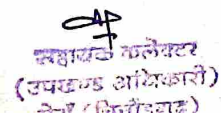 सहायक कलेक्टर
(उपखण्ड अधिकारी)
(चित्तौड़गढ़)